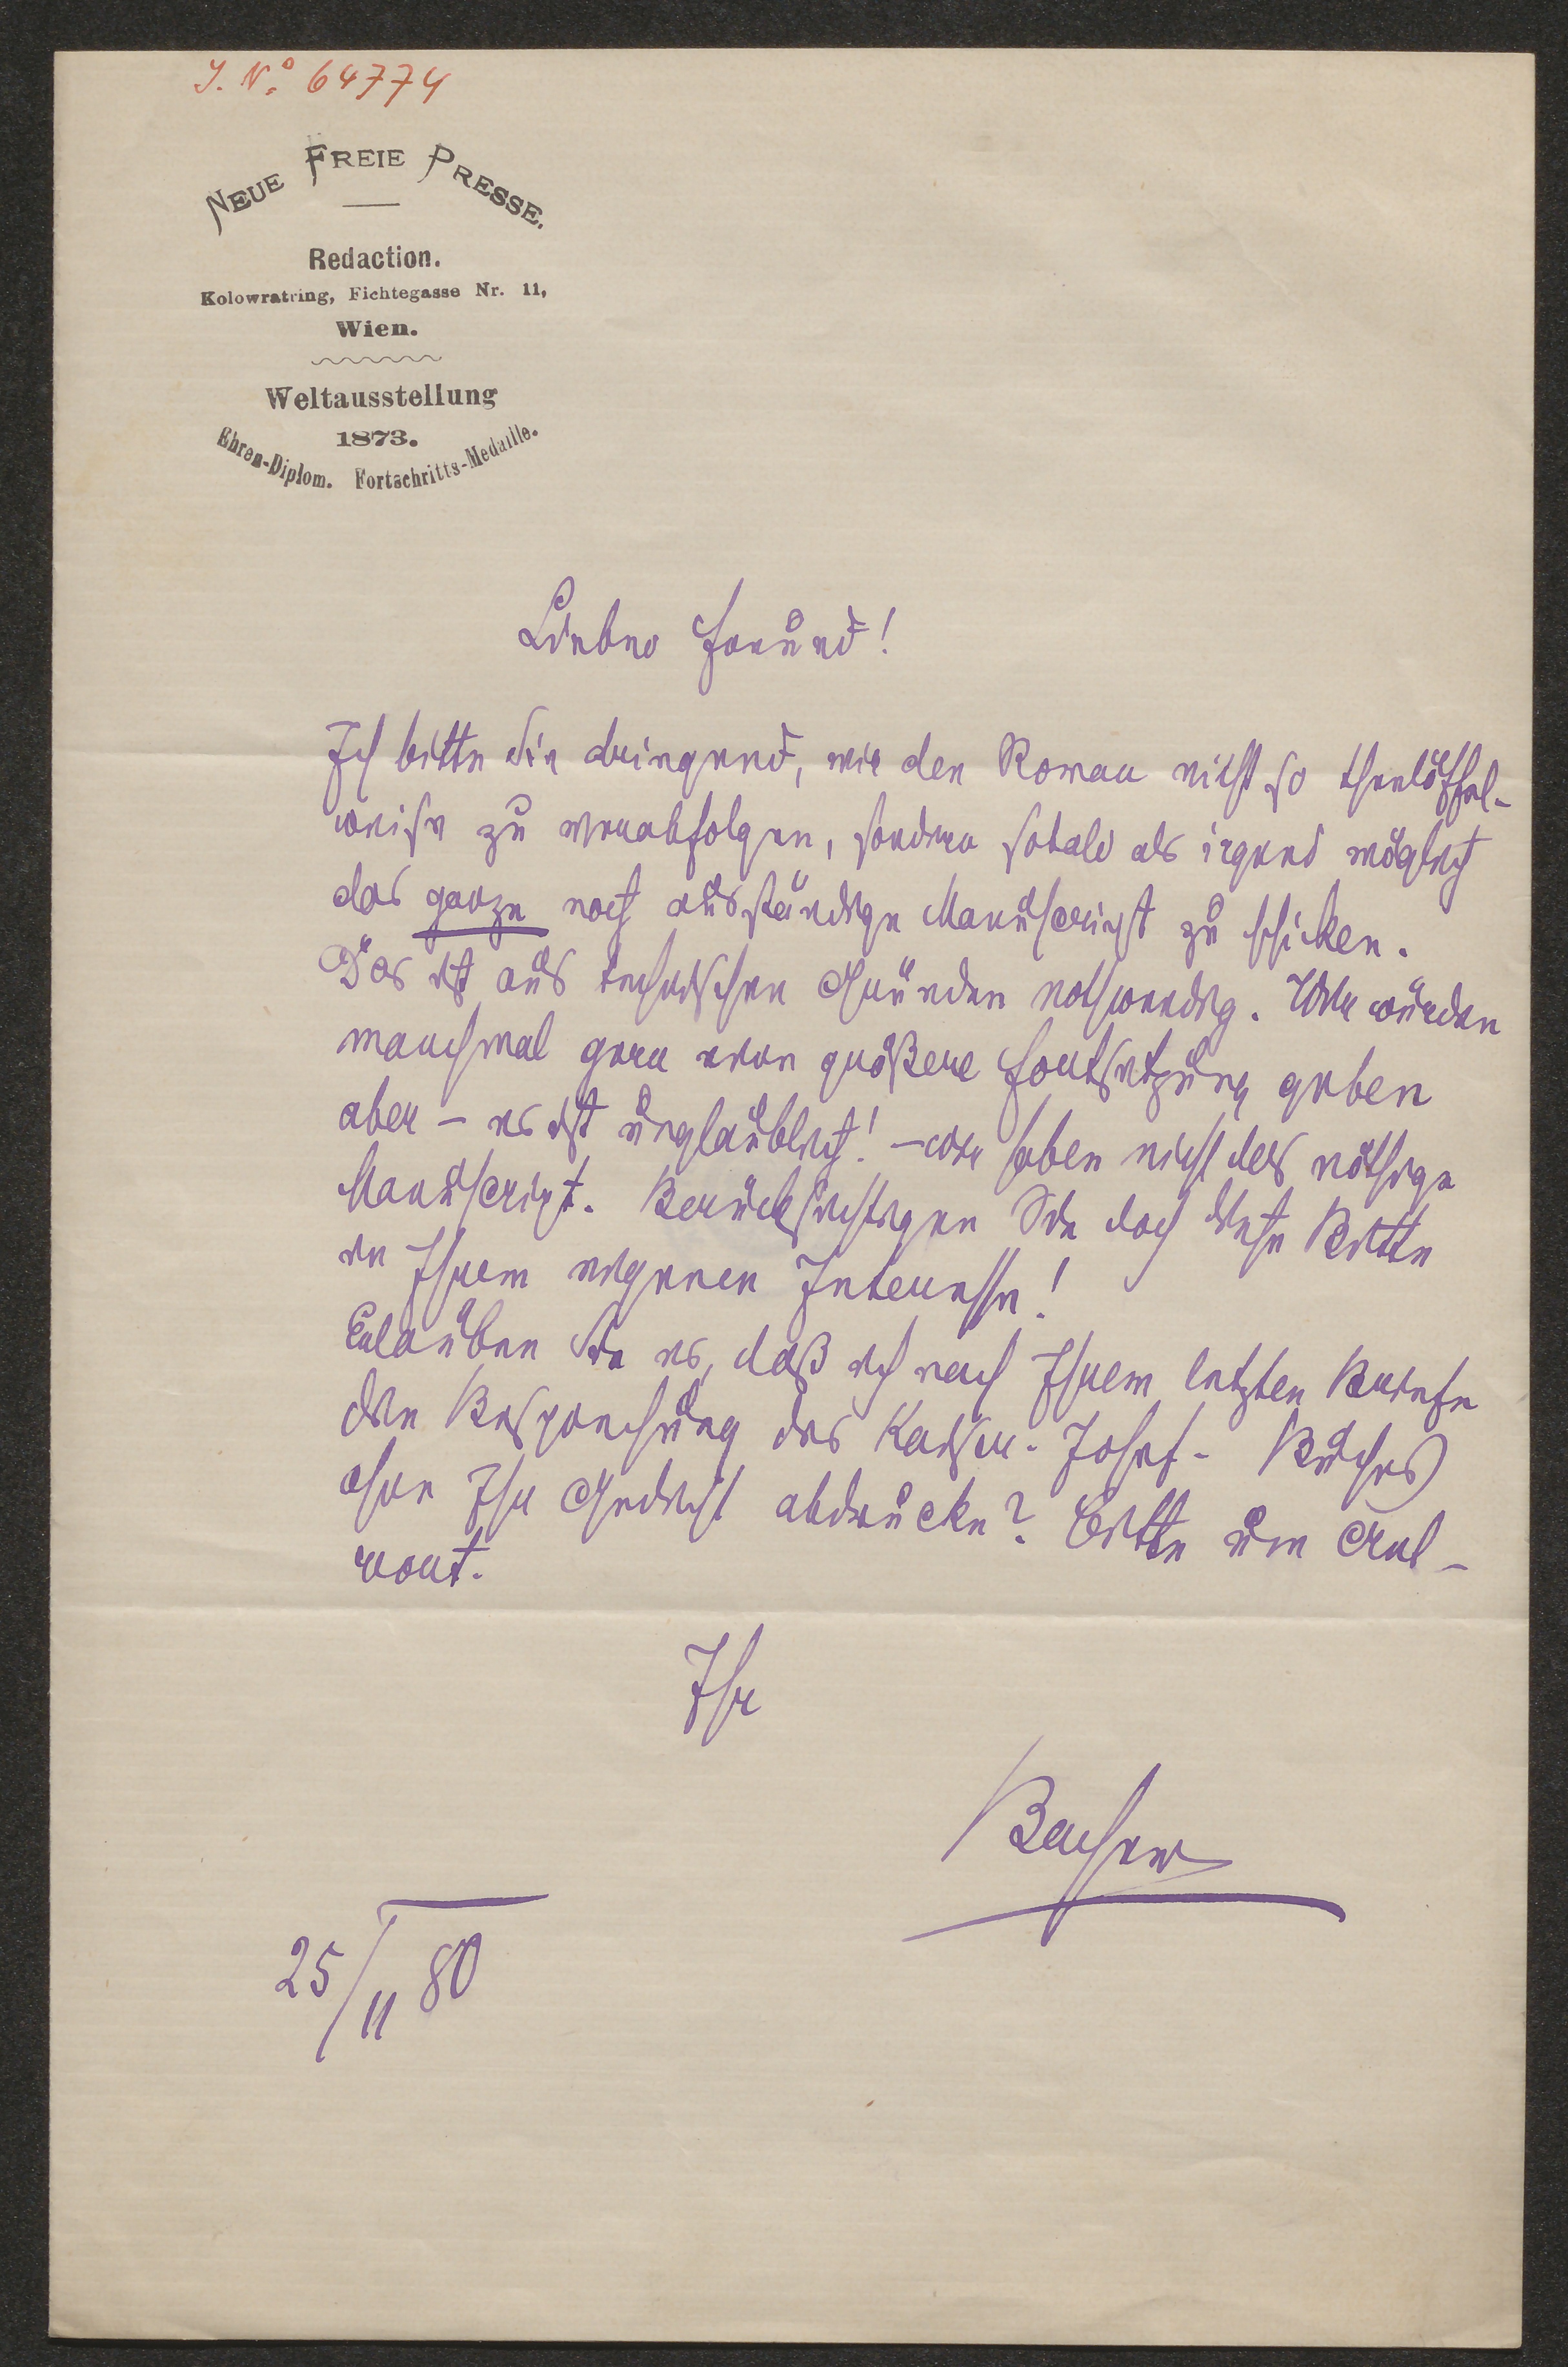 J. N.º 64774
NEUE FREIE PRESSE.
Redaction.
Kolowratring, Fichtegasse Nr. 11,
Wien.
Weltausstellung
1873.
Ehren-Diplom. Fortschritts-Medaille.
Lieber Freund!
Ich bitte Sie dringend, mir den Roman nicht so theelöffel-
weise zu verabfolgen, sondern sobald als irgend möglich
das ganze noch ausständige Manuscript zu schicken.
Das ist aus technischen Gründen nothwendig. Wir würden
manchmal gern eine größere Fortsetzung geben
aber – es ist unglaublich! – wir haben nicht das nöthige
Manuscript. Berücksichtigen Sie doch diese Bitte
in Ihrem eigenen Interesse!
Erlauben Sie es, daß ich nach Ihrem letzten Briefe
die Besprechung des Kaiser-Josef-Buches
ohne Ihr Gedicht abdrucke? Bitte um Ant-
wort.
Ihr
Bacher
25/11 80